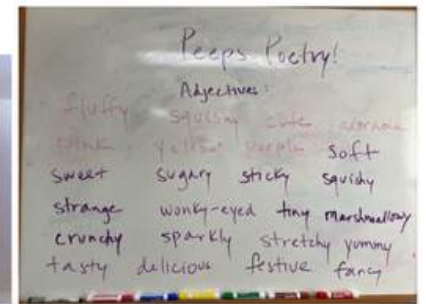 Peeps Poetry!
Adjectives:
fluffy squishy cute adorable
pink yellow purple soft
sweet sugary sticky squishy
strange wonky-eyed tiny marshmallowy
crunchy sparkly stretchy yummy
tasty delicious festive fancy